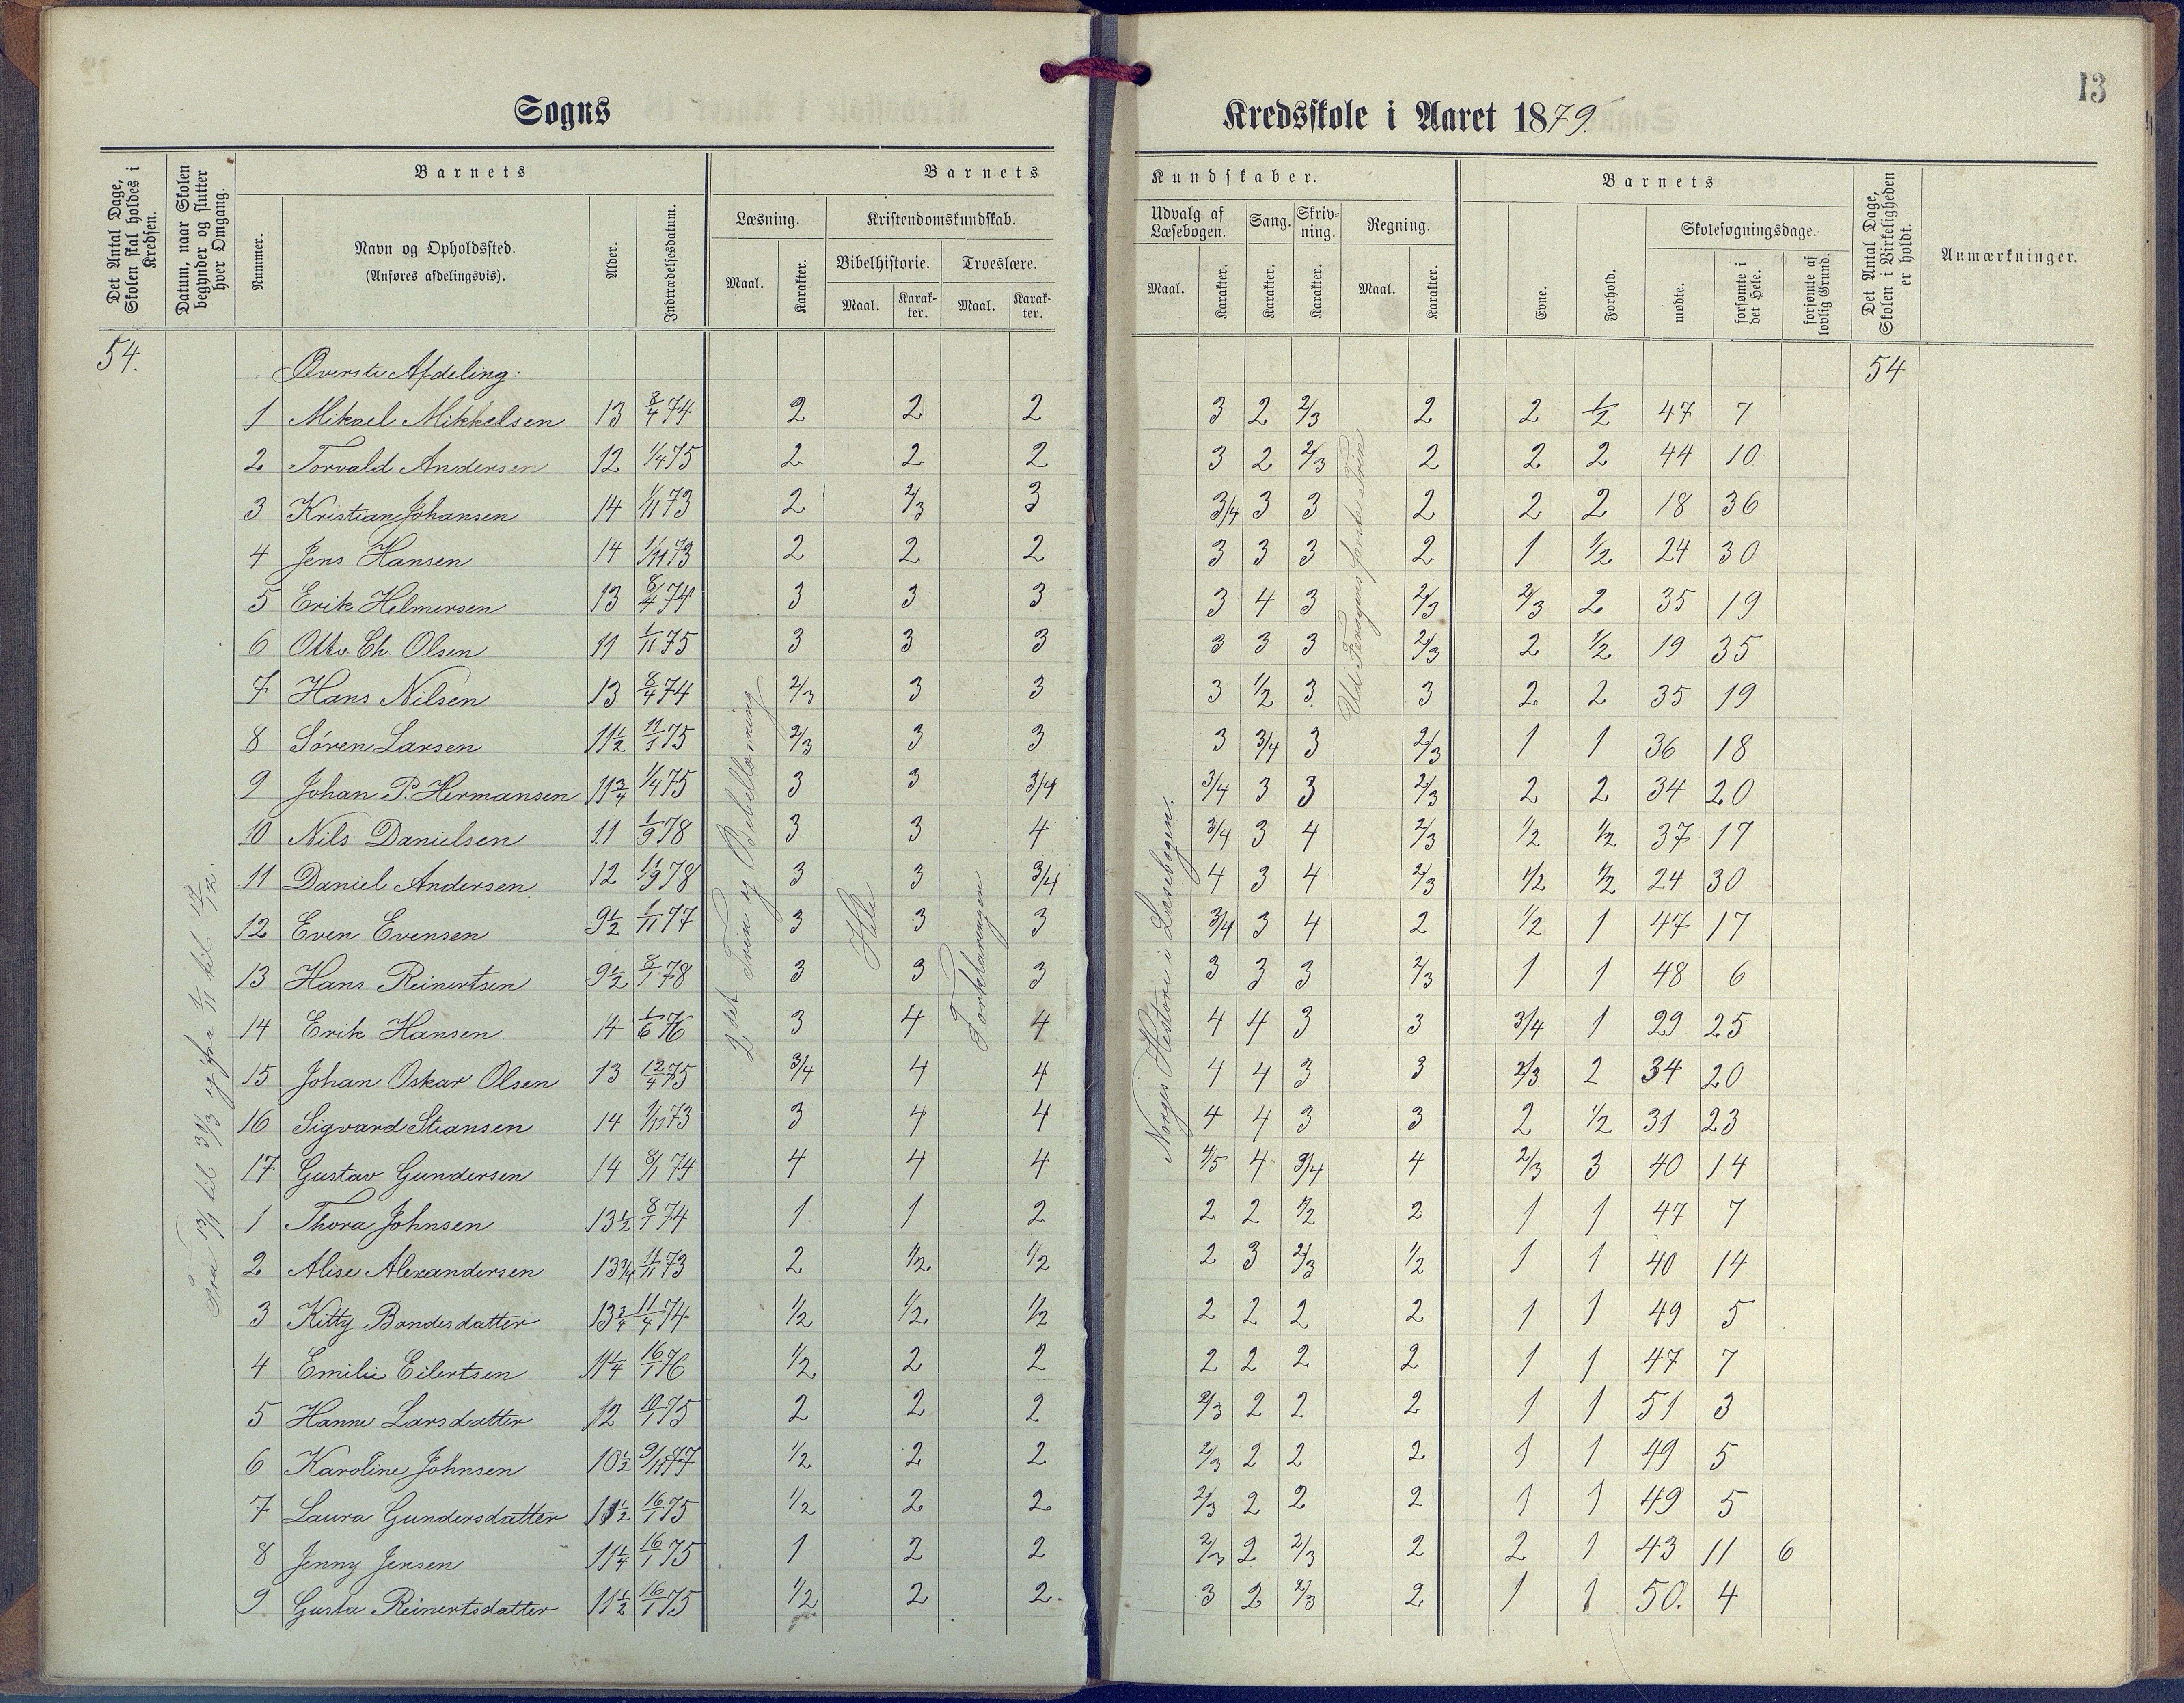 13
Sogns Kredsskole i Aaret 1879.
Det Antal Dage, Skolen skal holdes i Kredsen.
Datum, naar Skolen begynder og slutter hver Omgang.
Barnets
Nummer.
Navn og Opholdssted.
(Anføres afdelingsvis).
Alder.
Indtrædelsesdatum.
Barnets Kundskaber.
Læsning.
Maal.
Karakter.
Kristendomskundskab.
Bibelhistorie.
Maal.
Karakter.
Troeslære.
Maal.
Karakter.
Udvalg af Læsebogen.
Maal.
Karakter.
Sang.
Karakter.
Skrivning.
Karakter.
Regning.
Maal.
Karakter.
Barnets
Evne.
Forhold.
Skolesøgningsdage.
mødte.
forsømte i det Hele.
forsømte af lovlig Grund.
Det Antal Dage, Skolen i Virkeligheden er holdt.
Anmærkninger.
54. Øverste Afdeling: 54
1 Mikael Mikkelsen 13 8/4 74 2 2 2 3 2 2/3 2 2 1/2 47 7
2 Torvald Andersen 12 1/4 75 2 2 2 3 2 2/3 2 2 2 44 10
3 Kristian Johansen 14 1/11 73 2 2/3 3 3/4 3 3 2 2 2 18 36
4 Jens Hansen 14 1/11 73 2 2 2 3 3 3 2 1 1/2 24 30
5 Erik Helmersen 13 8/4 74 3 3 3 3 4 3 2/3 2/3 2 35 19
6 Otto Ch. Olsen 11 1/11 75 3 3 3 3 3 3 2/3 2 1/2 19 35
7 Hans Nilsen 13 8/4 74 2/3 3 3 3 1/2 3 3 2 2 35 19
8 Søren Larsen 11 1/2 11/1 75 2/3 3 3 3 3/4 3 2/3 1 1 36 18
9 Johan P. Hermansen 11 3/4 1/4 75 3 3 3/4 3/4 3 3 2/3 2 2 34 20
10 Nils Danielsen 11 1/9 78 3 3 4 3/4 3 4 2/3 1/2 1/2 37 17
11 Daniel Andersen 12 11/9 78 3 3 3/4 4 3 4 2/3 1/2 1/2 24 30
12 Even Evensen 9 1/2 1/11 77 3 3 3 3/4 3 4 2 1/2 1 47 17
13 Hans Reinertsen 9 1/2 8/1 78 3 3 3 3 3 3 2/3 1 1 48 6
14 Erik Hansen 14 1/6 76 3 4 4 4 4 3 3 3/4 1 29 25
15 Johan Oskar Olsen 13 12/4 75 3/4 4 4 4 4 3 3 2/3 2 34 20
16 Sigvard Stiansen 14 1/11 73 3 4 4 4 4 3 3 2 1/2 31 23
17 Gustav Gundersen 14 8/1 74 4 4 4 4/5 4 3/4 4 2/3 3 40 14
1 Thora Johnsen 13 1/2 8/1 74 1 1 2 2 2 1/2 2 1 1 47 7
2 Alise Alexandersen 13 3/4 11/11 73 2 1/2 1/2 2 3 2/3 1/2 1 1 40 14
3 Kitty Bondesdatter 13 3/4 11/4 74 1/2 1/2 1/2 2 2 2 2 1 1 49 5
4 Emilie Eilertsen 11 1/4 16/1 76 1/2 2 2 2 2 2 2 1 1 47 7
5 Hanne Larsdatter 12 10/1 75 2 2 2 2/3 2 2 2 1 1 51 3
6 Karoline Johnsen 10 1/2 9/11 77 1/2 2 2 2/3 2 2 2 1 1 49 5
7 Laura Gundersdatter 11 1/2 16/1 75 1/2 2 2 2/3 2 2 2 1 1 49 5
8 Jenny Jensen 11 1/4 16/1 75 1 2 2 2/3 2 2/3 2 2 1 43 11 6
9 Gusta Reinertsdatter 11 1/2 16/1 75 1/2 2 2. 3 2 2/3 2 1 1 50. 4
Fra 13/1 til 31/3 og fra 1/11 til 12/12.
2det Trin og Bibellæsning
Hele
Forklaringen
Norges Historie i Læsebogen.
Ud Feragens første Trin